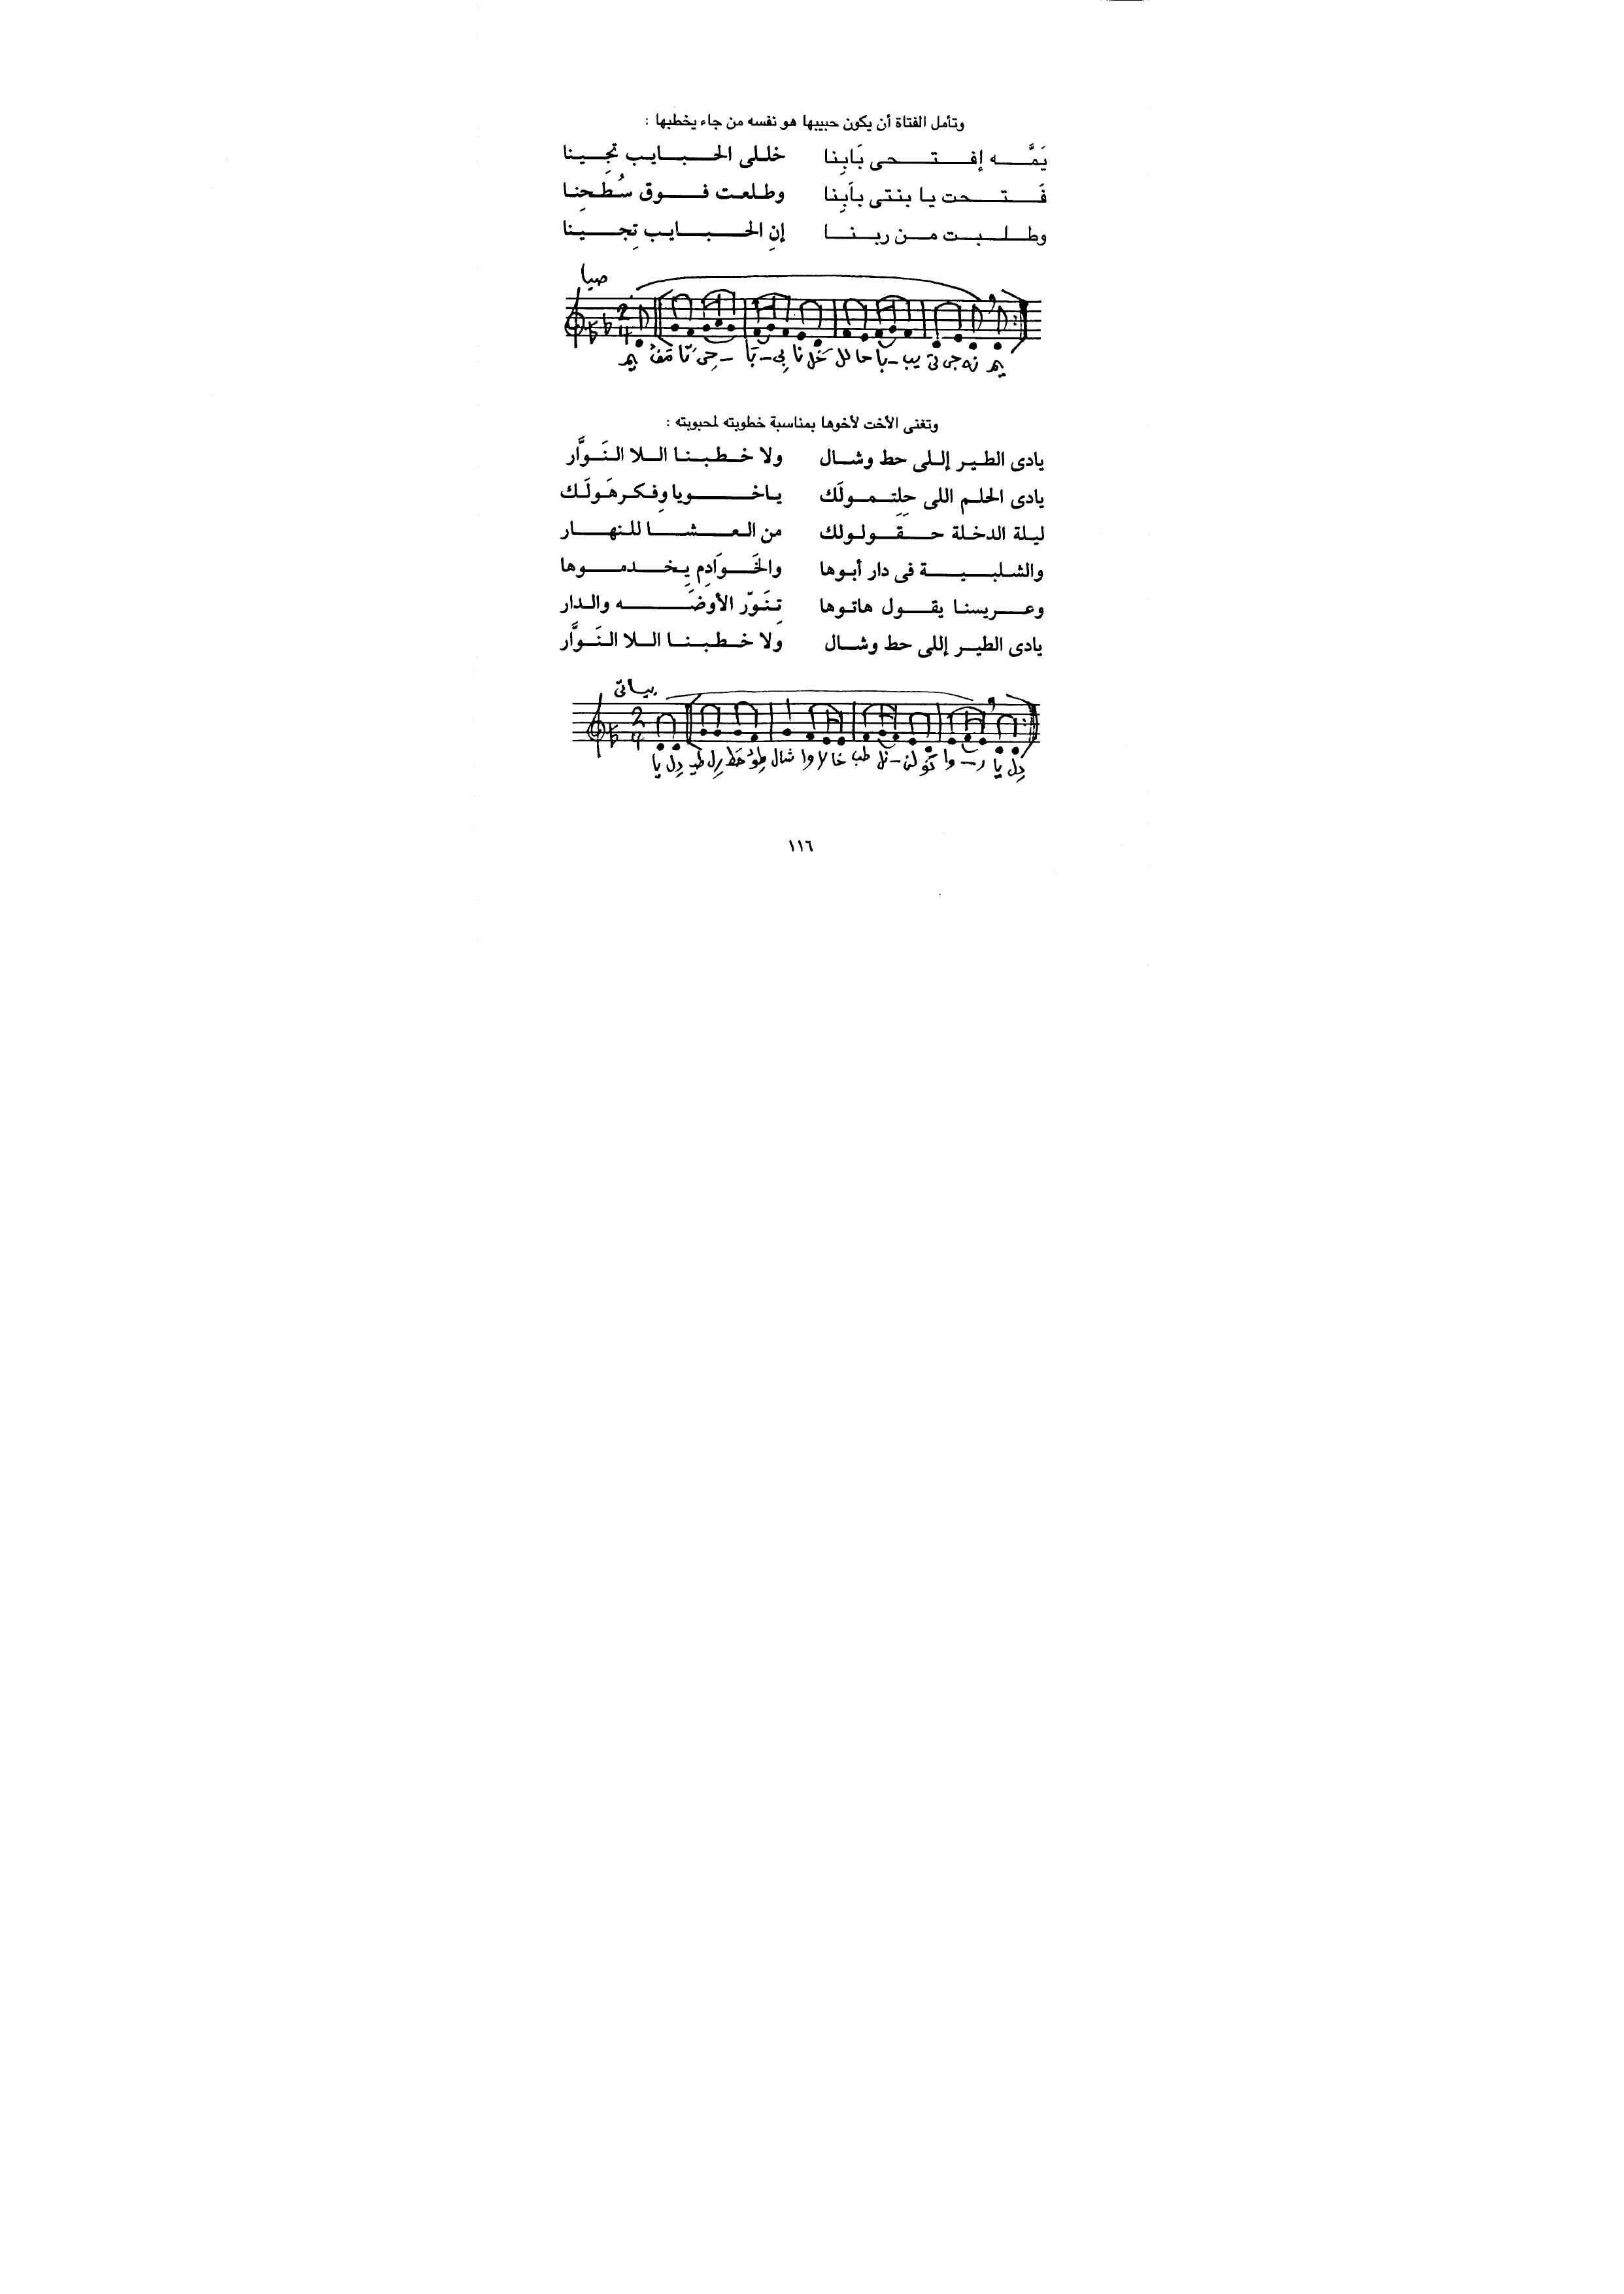 وتأمل الفتاة أن يكون حبيبها هو نفسه من جاء يخطبها :
يَمَّه إفتحى بَابِنا خللى الحبايب تجِينا
فَتحت يا بنتى بابِنا وطلعت فوق سُطحِنا
وطلبت من ربنا إنِ الحبايب تِجينا
صبا
2/4
وتغنى الأخت لأخوها بمناسبة خطوبته لمحبوبته :
يادى الطير إللى حط وشال ولا خطبنا اللا النَوَّار
يادى الحلم اللى حِلِتمولَك ياخويا وفِكرهَولَك
ليلة الدخلة حقولولك من العشا للنهار
والشلبية فى دار أبوها والخَوَادِم يِخدموها
وعريسنا يقول هاتوها تِنَوّر الأوضَه والدار
يادى الطير إللى حط وشال ولا خطبنا اللا النَوَّار
بياتى
2/4
١١٦